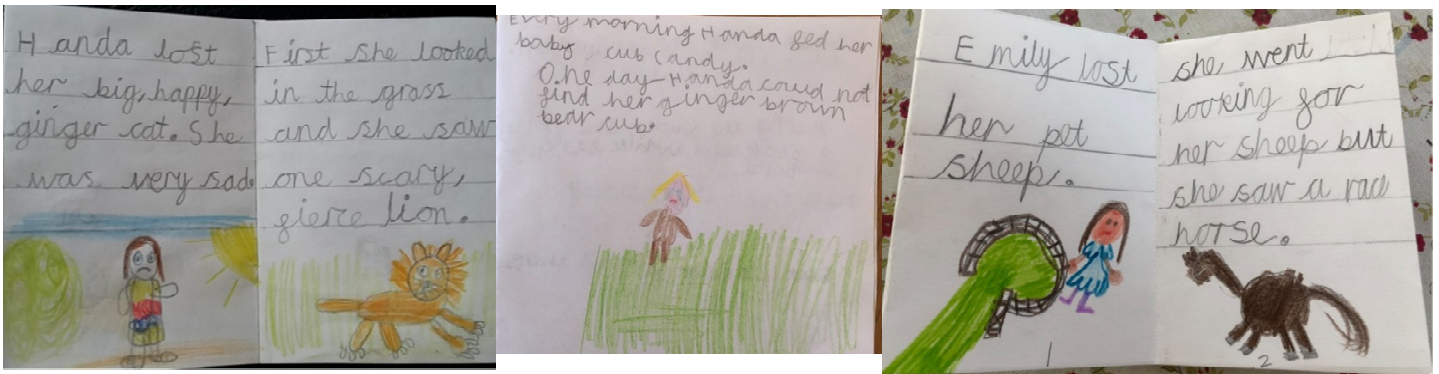 Handa lost
her big, happy,
ginger cat. She
was very sad.
First she looked
in the grass
and she saw
one scary,
fierce lion.
Every morning Handa fed her
baby cub Candy.
One day Handa could not
find her ginger brown
bear cub.
Emily lost
her pet
sheep.
1
she went
looking for
her sheep but
she saw a race
horse.
2